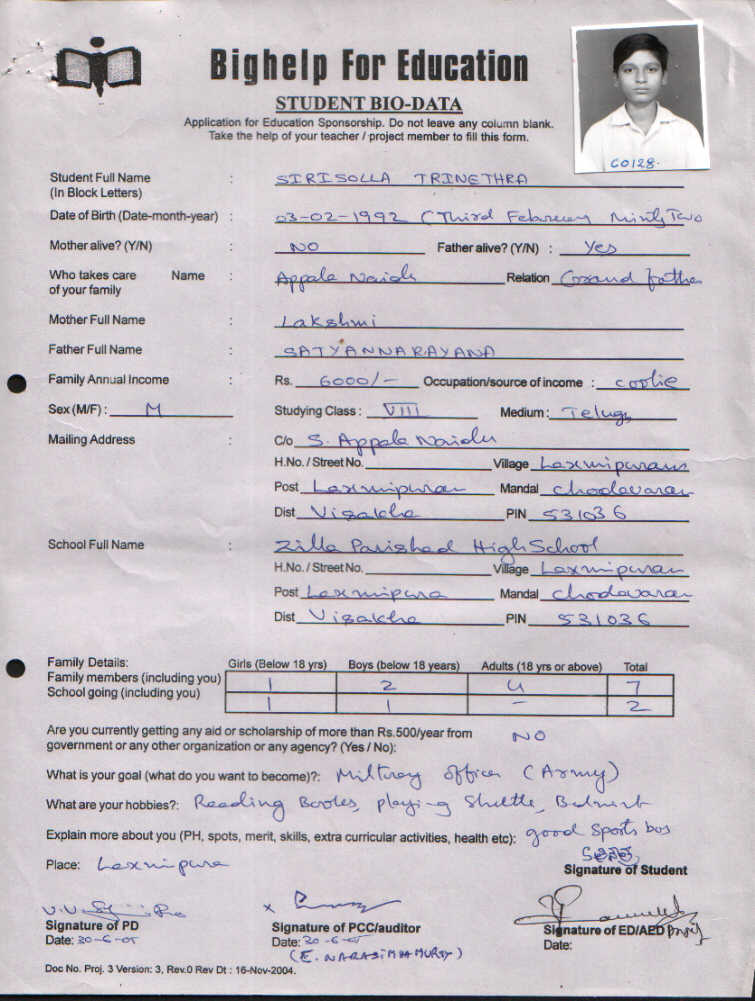 Bighelp For Education
STUDENT BIO-DATA
Application for Education Sponsorship. Do not leave any column blank.
Take the help of your teacher / project member to fill this form.
CO128.
Student Full Name : SIRISOLLA TRINETHRA
(In Block Letters)
Date of Birth (Date-month-year) : 03-02-1992 (Third February Ninty Two
Mother alive? (Y/N) : NO Father alive? (Y/N) : Yes
Who takes care Name : Appala Naidu Relation Grand father
of your family
Mother Full Name : Lakshmi
Father Full Name : SATYANNARAYANA
Family Annual Income : Rs. 6000/- Occupation/source of income : coolie
Sex (M/F) : M Studying Class : VIII Medium : Telugu
Mailing Address : C/o S. Appala Naidu
H.No. / Street No. Village Laxmipuram
Post Laxmipuram Mandal chodavaram
Dist Visakha PIN 531036
School Full Name : Zilla Parishad High School
H.No. / Street No. Village Laxmipuram
Post Laxmipura Mandal chodavaram
Dist Visakha PIN 531036
Family Details: Girls (Below 18 yrs) Boys (below 18 years) Adults (18 yrs or above) Total
Family members (including you) 1 2 4 7
School going (including you) 1 1 - 2
Are you currently getting any aid or scholarship of more than Rs.500/year from NO
government or any other organization or any agency? (Yes / No):
What is your goal (what do you want to become)?: Miltray officer (Army)
What are your hobbies?: Reading Books, playing Shuttle,
Explain more about you (PH, spots, merit, skills, extra curricular activities, health etc): good Sports boy
Place: Laxmipura
Signature of Student
Signature of PD Signature of PCC/auditor Signature of ED/AED
Date: 30-6-05 Date: 30-6-05 Date:
(E. NARASIMHAMURTY)
Doc No. Proj. 3 Version: 3, Rev.0 Rev Dt : 16-Nov-2004.